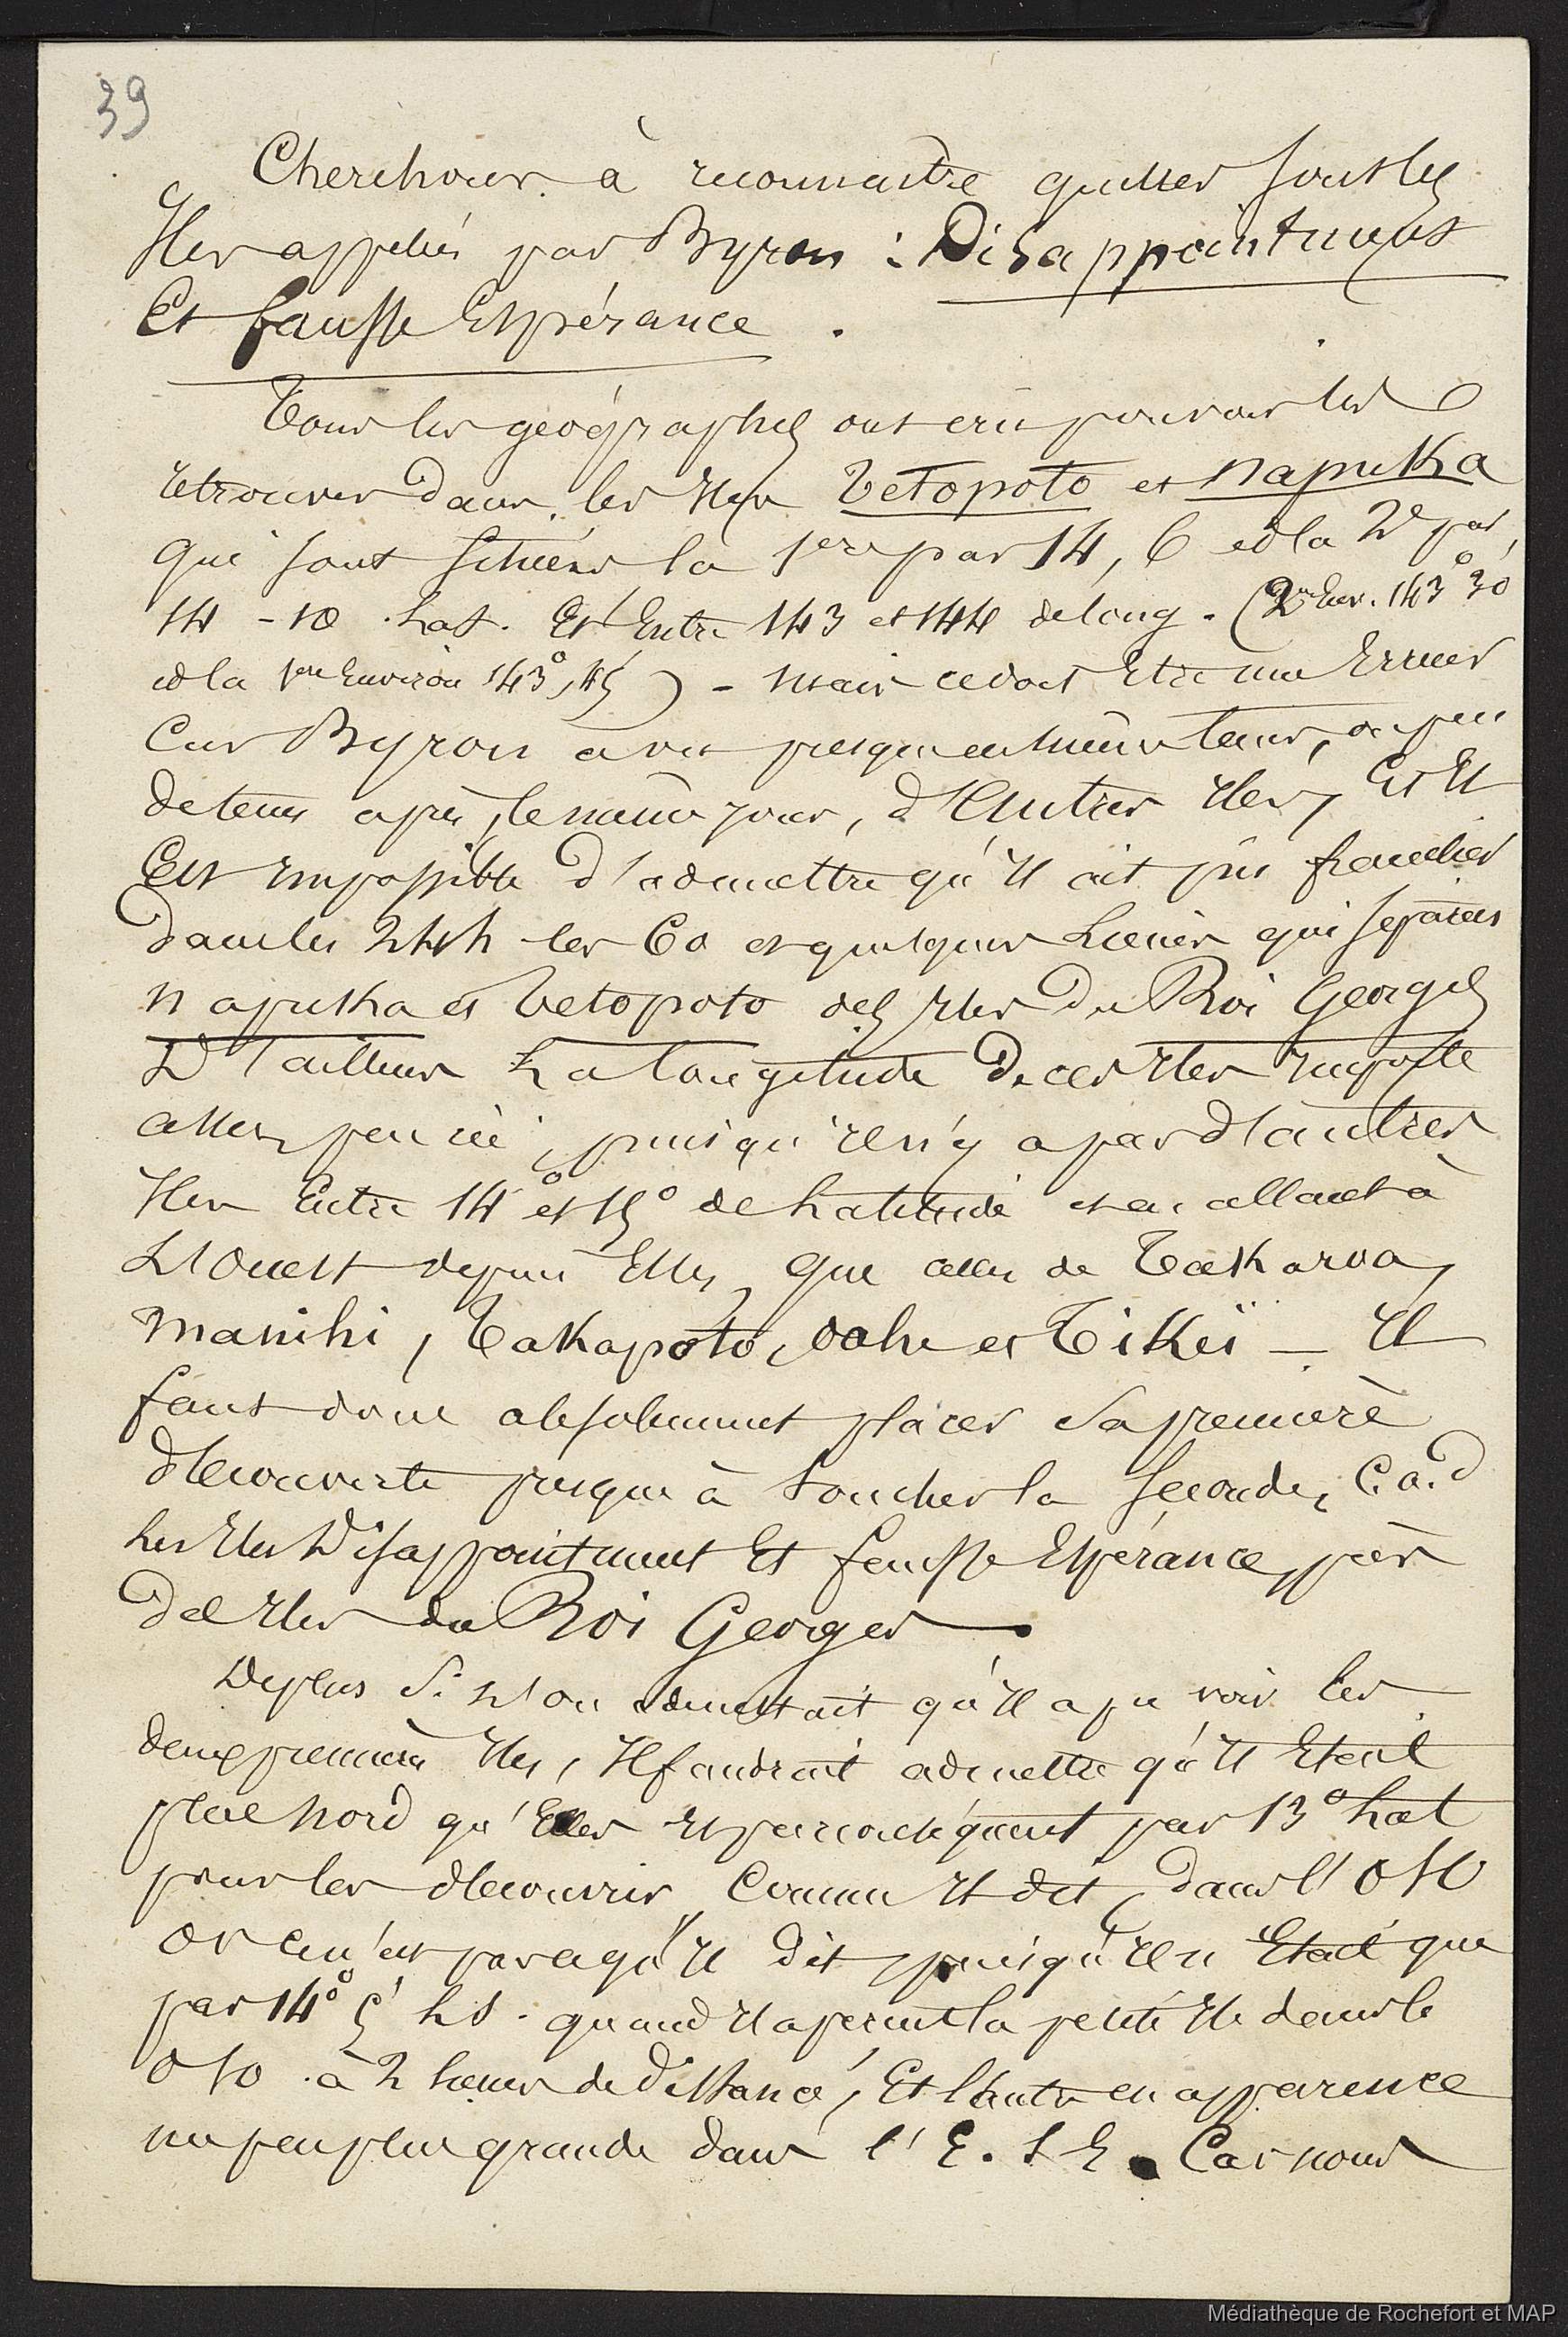 39
Cherchons à reconnaitre quelles sont les
Iles appelées par Byron : Disappointment
Et fausse Espérance .
Tous les géographes ont cru pouvoir les
retrouver dans les Iles Tetopoto et Napuka
qui sont situées la 1ere par 14, 6 et la 2e par
14 - 10 . Lat. Et Entre 143 et 144 de long . (2me Env. 143° 30
et la 1re Environ 143°, 45) - Mais ce doit Etre une Erreur
Car Byron a vu presqu'en même tems, ou peu
de tems après, le même jour, d'Autres Iles, Et Il
Est impossible d'admettre qu'Il ait pu franchir
dans les 24h les 60 et quelques Lieues qui séparent
Napuka et Tetopoto des Iles du Roi Georges
D'ailleurs La longitude de ces Iles importe
assez peu ici, puisqu'il n'y a pas d'autres
Iles Entre 14° et 15° de Latitude et en allant à
L'Ouest depuis Elles, que celles de Takaroa,
Manihi, Takapoto, Oahe et Tikeï — Il
faut donc absolument placer sa première
découverte presque à toucher la seconde, C.a.d
les Iles Disappointment Et fausse Espérance, près
des Iles du Roi Georges
De plus Si L'on admettait qu'Il a pu voir les
deux premières Iles, Il faudrait admettre qu'Il Etait
plus Nord qu'Elles et par conséquent par 13° Lat
pour les découvrir, Comme Il dit, dans l'OSO
or ce n'est pas ce qu'Il dit puisqu'Il n'Etait que
par 14° 5' L S . quand Il aperçut la petite Ile dans le
OSO . à 2 lieues de distance, Et l'autre en apparence
un peu plus grande dans l'E. S E. Car nous
Médiathèque de Rochefort et MAP